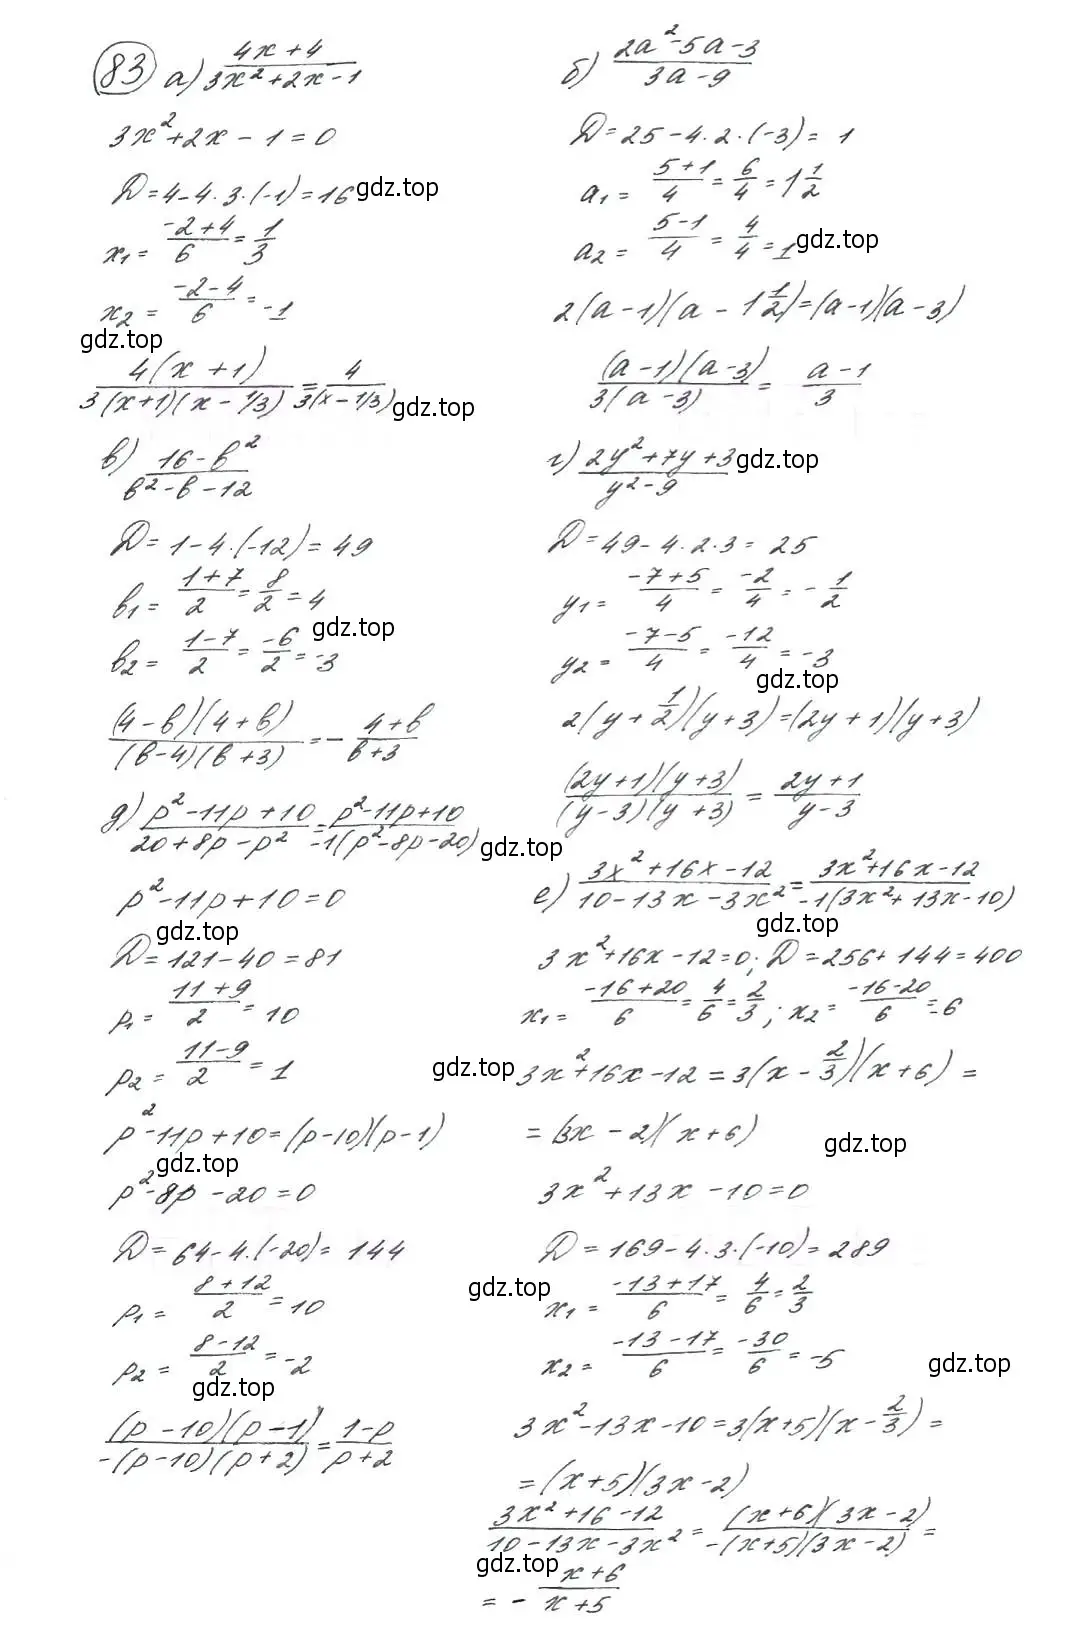 83 а) (4x+4)/(3x²+2x-1)
3x²+2x-1=0
Д=4-4·3·(-1)=16 gdz.top
x₁= (-2+4)/6 = 1/3
x₂= (-2-4)/6 = -1
gdz.top
4(x+1)/(3(x+1)(x-1/3)) = 4/(3(x-1/3)) gdz.top
б) (2a²-5a-3)/(3a-9)
Д=25-4·2·(-3)=1
a₁= (5+1)/4 = 6/4 = 1 1/2
a₂= (5-1)/4 = 4/4 = 1 gdz.top
2(a-1)(a-1 1/2)=(a-1)(a-3)
(a-1)(a-3)/(3(a-3)) = (a-1)/3
в) (16-b²)/(b²-b-12)
Д=1-4·(-12)=49
b₁= (1+7)/2 = 8/2 = 4
b₂= (1-7)/2 = -6/2 = -3 gdz.top
(4-b)(4+b)/((b-4)(b+3)) = - (4+b)/(b+3)
г) (2y²+7y+3)/(y²-9) gdz.top
Д=49-4·2·3=25
y₁= (-7+5)/4 = -2/4 = - 1/2
y₂= (-7-5)/4 = -12/4 = -3
gdz.top
2(y+1/2)(y+3)=(2y+1)(y+3)
(2y+1)(y+3)/((y-3)(y+3)) = (2y+1)/(y-3)
д) (p²-11p+10)/(20+8p-p²) = (p²-11p+10)/(-1(p²-8p-20)) gdz.top
p²-11p+10=0
gdz.top
Д=121-40=81
p₁= (11+9)/2 = 10
p₂= (11-9)/2 = 1
p²-11p+10=(p-10)(p-1)
gdz.top
p²-8p-20=0
Д=64-4·(-20)=144
p₁= (8+12)/2 = 10
p₂= (8-12)/2 = -2
gdz.top
(p-10)(p-1)/(-(p-10)(p+2)) = (1-p)/(p+2)
е) (3x²+16x-12)/(10-13x-3x²) = (3x²+16x-12)/(-1(3x²+13x-10))
gdz.top
3x²+16x-12=0; Д=256+144=400
x₁= (-16+20)/6 = 4/6 = 2/3; x₂= (-16-20)/6 = -6
gdz.top 3x²+16x-12=3(x-2/3)(x+6)=
=(3x-2)(x+6)
gdz.top
3x²+13x-10=0
Д=169-4·3·(-10)=289
gdz.top
x₁= (-13+17)/6 = 4/6 = 2/3
x₂= (-13-17)/6 = -30/6 = -5 gdz.top
3x²-13x-10=3(x+5)(x-2/3)=
=(x+5)(3x-2)
(3x²+16-12)/(10-13x-3x²) = (x+6)(3x-2)/(-(x+5)(3x-2)) =
gdz.top
= - (x+6)/(x+5)